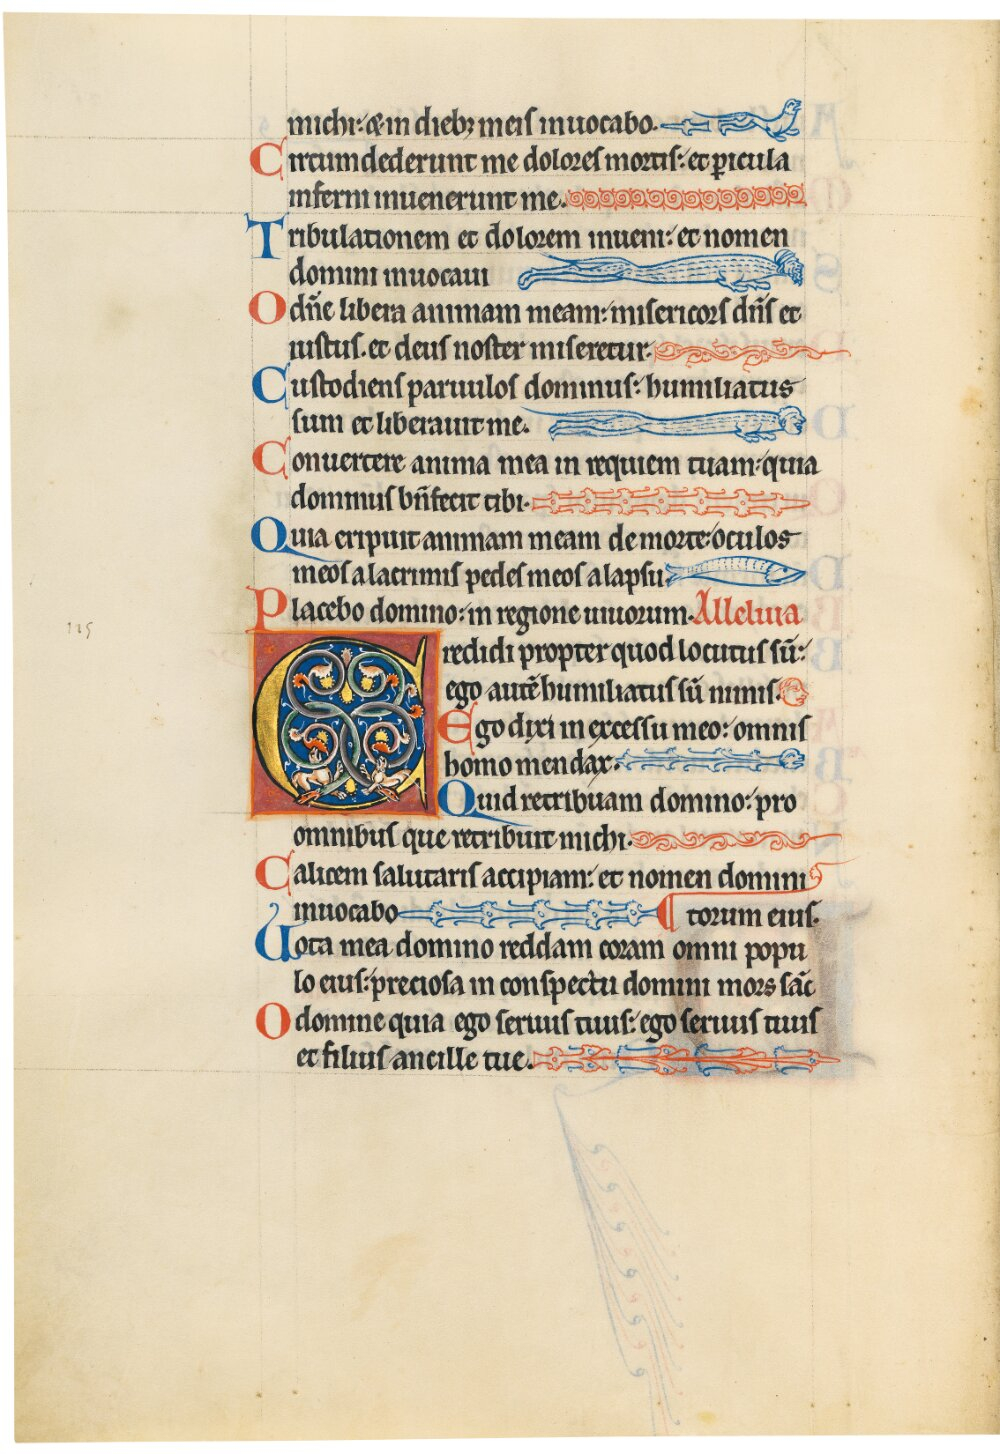 michi: & in dieb; meis inuocabo.
Circumdederunt me dolores mortis: et picula
inferni inuenerunt me.
Tribulationem et dolorem inueni: et nomen
domini inuocaui
O dñe libera animam meam: misericors dñs et
iustus. et deus noster miseretur.
Custodiens paruulos dominus: humiliatus
sum et liberauit me.
Conuertere anima mea in requiem tuam: quia
dominus bñfecit tibi.
Quia eripuit animam meam de morte: oculos
meos a lacrimis pedes meos a lapsu.
Placebo domino: in regione uiuorum. Alleluia
Credidi propter quod locutus sū:
ego autē humiliatus sū nimis.
Ego dixi in excessu meo: omnis
homo mendax.
Quid retribuam domino: pro
omnibus que retribuit michi.
Calicem salutaris accipiam: et nomen domini
inuocabo ¶ torum eius.
Uota mea domino reddam coram omni popu
lo eius: preciosa in conspectu domini mors sāc
O domine quia ego seruus tuus: ego seruus tuus
et filius ancille tue.
125